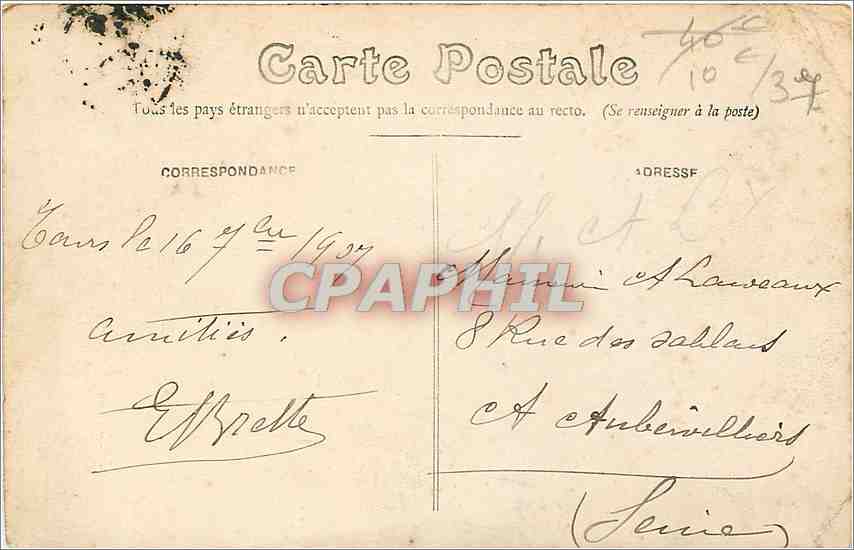 40 c
10 c
/3
Carte Postale
Tous les pays étrangers n'acceptent pas la correspondance au recto. (Se renseigner à la poste)
CORRESPONDANCE
Tours le 16 7bre 1907
amitiés.
EBrette
ADRESSE
M. A L
A Laweaux
8 Rue des Sablons
A Aubervilliers
(Seine)
CPAPHIL